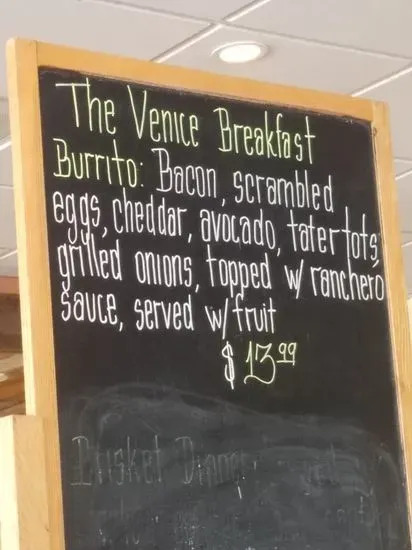 The Venice Breakfast
Burrito: Bacon, scrambled
eggs, cheddar, avocado, tater tots,
grilled onions, topped w/ ranchero
sauce, served w/ fruit
$ 13.99
Brisket Dinner